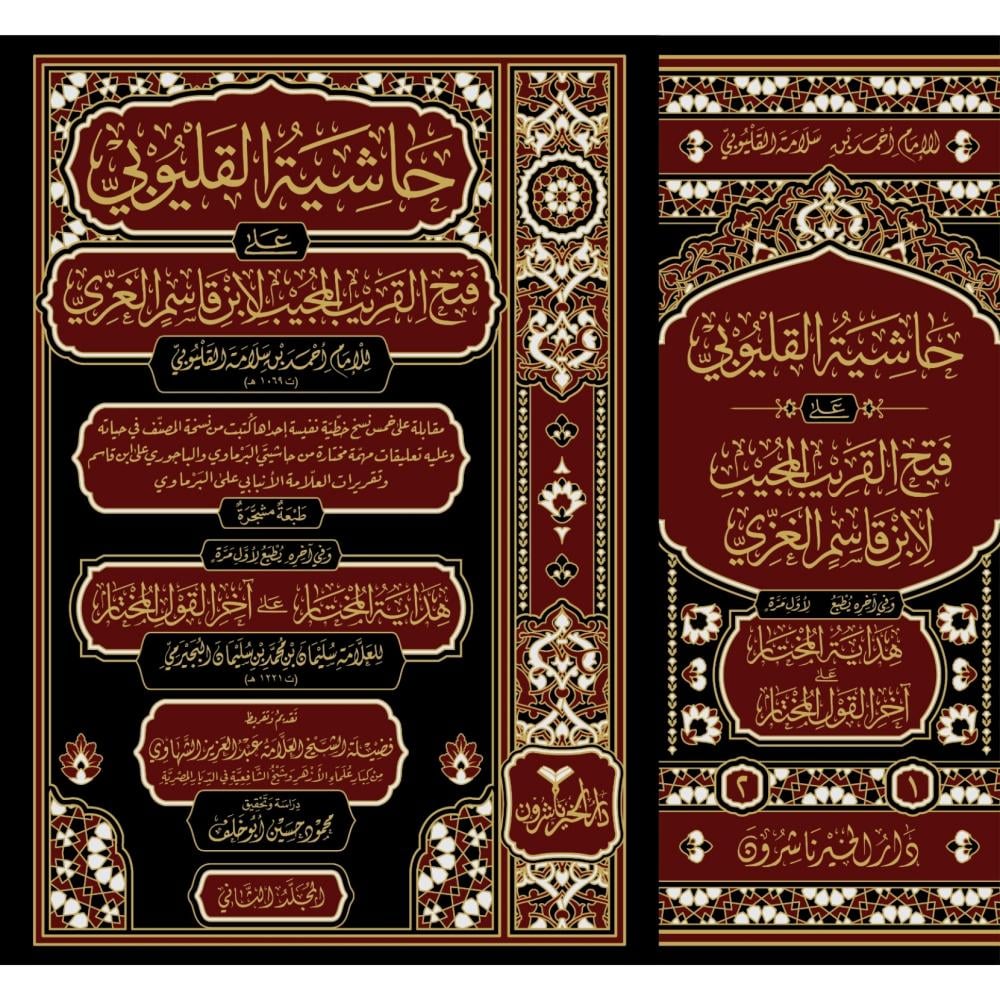 حَاشِيَةُ القَلْيُوبِيِّ
عَلَى
فَتْحِ القَرِيبِ المُجِيبِ لِابْنِ قَاسِمٍ الغَزِّيِّ
لِلإِمَامِ أَحْمَدَ بْنِ سَلَامَةَ القَلْيُوبِيِّ
(ت ١٠٦٩ هـ)
مقابلة على خمس نسخ خطيّة نفيسة إحداها كُتبت من نسخة المصنّف في حياته
وعليه تعليقات مهمّة مختارة من حاشيتي البَرْماوي والباجوري على ابن قاسم
وتقريرات العلّامة الأنبابي على البَرْماوي
طَبْعَةٌ مشَجَّرَةٌ
وَفِي آخِرِهِ يُطْبَعُ لِأَوَّلِ مَرَّة
هِدَايَةُ المُخْتَارِ عَلَى آخِرِ القَوْلِ المُخْتَارِ
لِلعَلَّامَةِ سُلَيْمَانَ بْنِ مُحَمَّدِ بْنِ سُلَيْمَانَ البُجَيْرَمِيِّ
(ت ١٢٢١ هـ)
تَقْدِيمُ وَتَقْرِيظُ
فَضِيلَةِ الشَّيْخِ العَلَّامَةِ عَبْدِ العَزِيزِ الشَّهَاوِي
مِنْ كِبَارِ عُلَمَاءِ الأَزْهَرِ وَشَيْخِ الشَّافِعِيَّةِ فِي الدِّيَارِ المِصْرِيَّةِ
دِرَاسَة وَتَحْقِيق
مَحْمُود حُسَيْن أَبُو خَلَف
المُجَلَّدُ الثَّانِي
دَارُ الخَيْرِ نَاشِرُونَ
لِلإِمَامِ أَحْمَدَ بْنِ سَلَامَةَ القَلْيُوبِيِّ
حَاشِيَةُ القَلْيُوبِيِّ
عَلَى
فَتْحِ القَرِيبِ المُجِيبِ
لِابْنِ قَاسِمٍ الغَزِّيِّ
وَفِي آخِرِهِ يُطْبَعُ لِأَوَّلِ مَرَّة
هِدَايَةُ المُخْتَارِ
عَلَى
آخِرِ القَوْلِ المُخْتَارِ
١ ٢
دَارُ الخَيْرِ نَاشِرُونَ